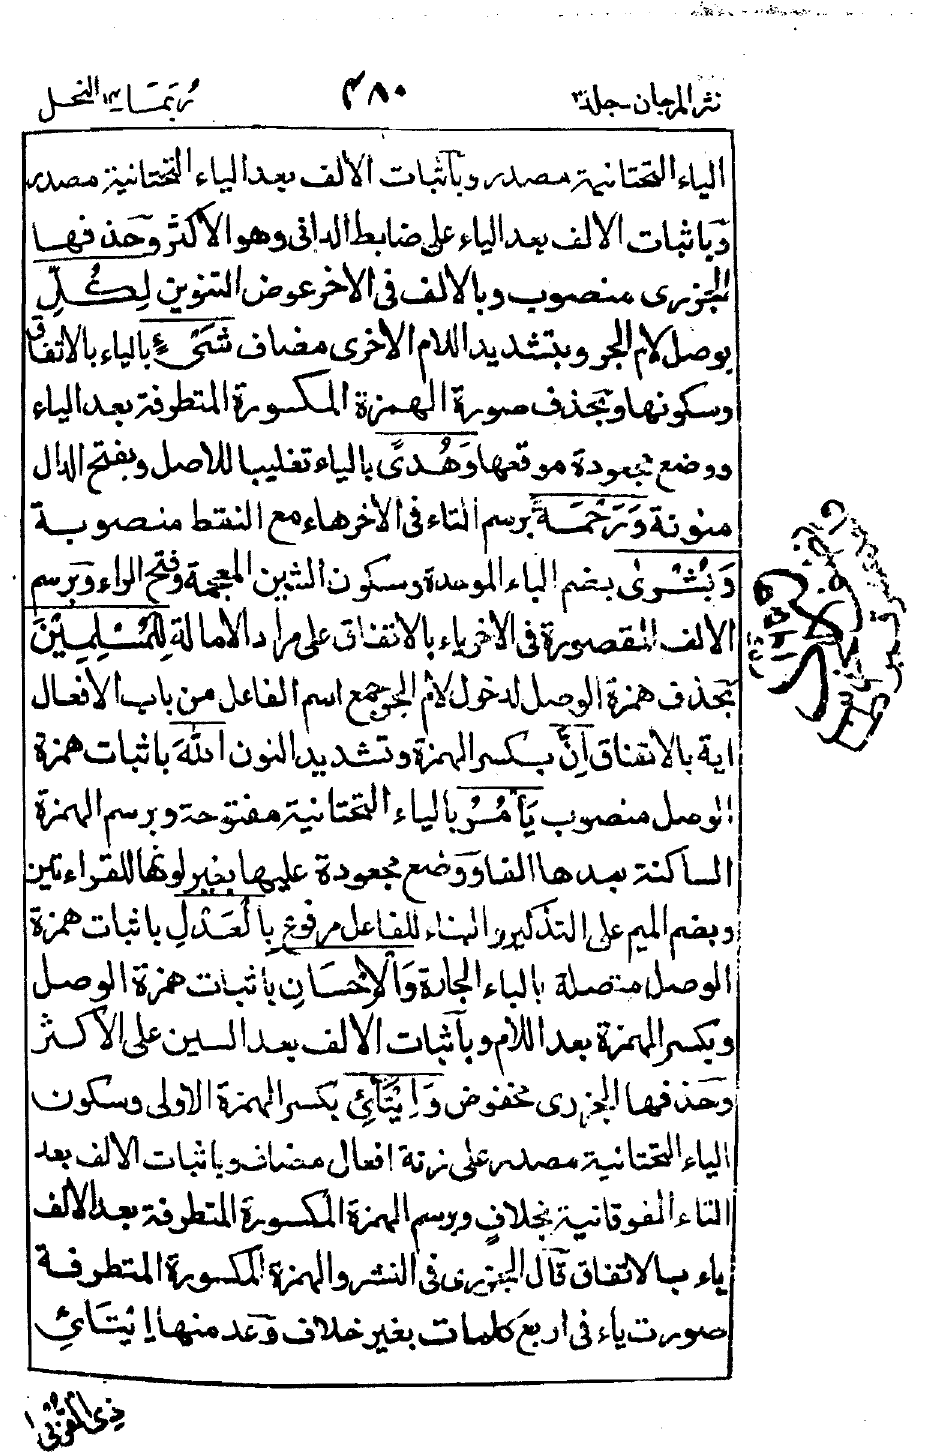 نثر المرجان - جلد ٣
٣٨٠
ربما ١٤ النحل
الياء التحتانية مصدر وباثبات الالف بعد الياء التحتانية مصدر
وباثبات الالف بعد الياء على ضابط الدانى وهو الاكثر وحذفها
الجزرى منصوب وبالالف فى الآخر عوض التنوين لِكُلِّ
بوصل لام الجر وبتشديد اللام الاخرى مضاف شَىْءٍ بالياء بالاتفاق
وسكونها وبحذف صورة الهمزة المكسورة المتطرفة بعد الياء
ووضع مجعودة موقعها وَهُدًى بالياء تغليبا للاصل وبفتح الدال
منونة وَرَحْمَةً برسم التاء فى الآخر هاء مع النقط منصوبة
وَبُشْرٰى بضم الباء الموحدة وسكون الشين المعجمة وفتح الراء وبرسم
الالف المقصورة فى الآخر ياء بالاتفاق على مراد الامالة لِلْمُسْلِمِيْنَ
بحذف همزة الوصل لدخول لام الجر جمع اسم الفاعل من باب الافعال
اية بالاتفاق اِنَّ بكسر الهمزة وتشديد النون اللّٰهَ باثبات همزة
الوصل منصوب يَأْمُرُ بالياء التحتانية مفتوحة وبرسم الهمزة
الساكنة بعدها الفا ووضع مجعودة عليها بغير لونها للقراءتين
وبضم الميم على التذكير والبناء للفاعل مرفوع بِالْعَدْلِ باثبات همزة
الوصل متصلة بالباء الجارة وَالْاِحْسَانِ باثبات همزة الوصل
وبكسر الهمزة بعد اللام وباثبات الالف بعد السين على الاكثر
وحذفها الجزرى مخفوض وَاِيْتَآئِ بكسر الهمزة الاولى وسكون
الياء التحتانية مصدر على زنة افعال مضاف وباثبات الالف بعد
التاء الفوقانية بخلاف وبرسم الهمزة المكسورة المتطرفة بعد الالف
ياء بالاتفاق قال الجزرى فى النشر والهمزة المكسورة المتطرفة
صورت ياء فى اربع كلمات بغير خلاف وعد منها اِيْتَآئِ
ذِى الْقُرْبٰى